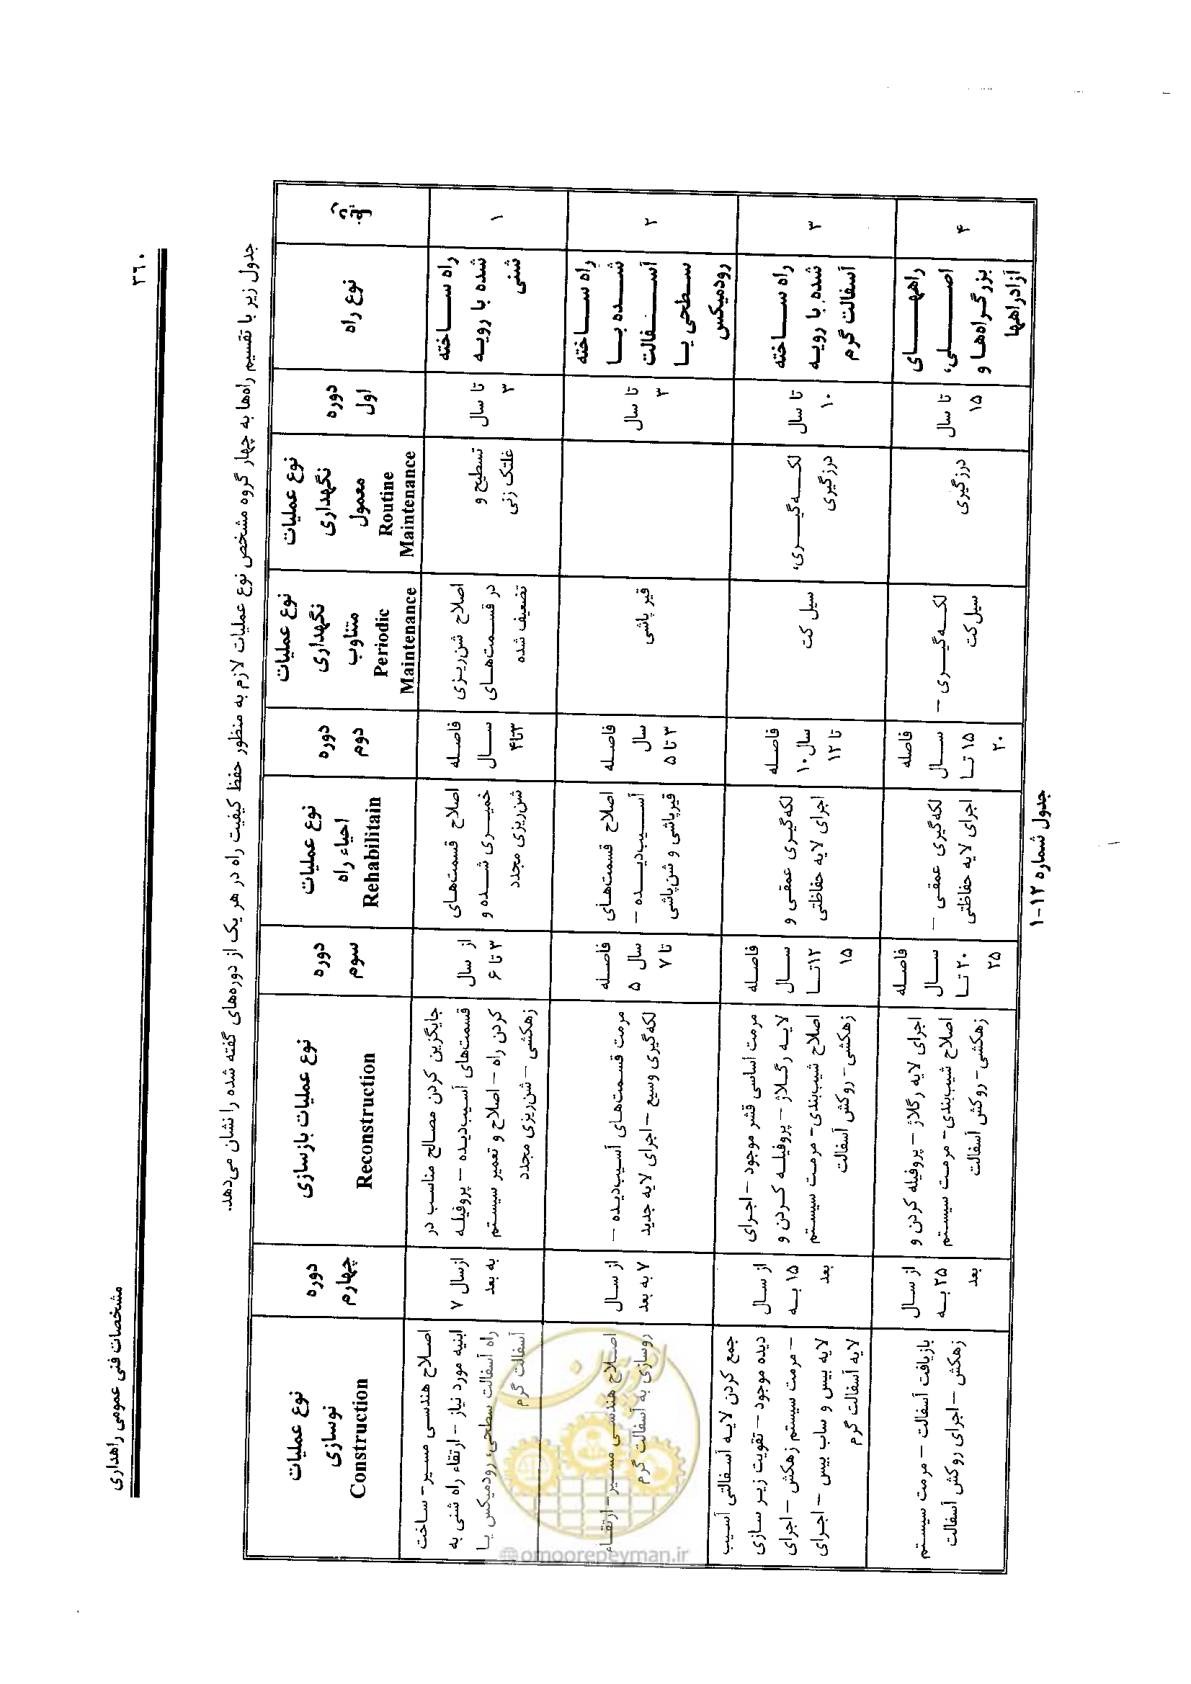 ۳۶۰
مشخصات فنی عمومی راهداری
جدول زیر با تقسیم راه‌ها به چهار گروه مشخص نوع عملیات لازم به منظور حفظ کیفیت راه در هر یک از دوره‌های گفته شده را نشان می‌دهد.
نوع راه
دوره
اول
نوع عملیات
نگهداری
معمول
Routine
Maintenance
نوع عملیات
نگهداری
متناوب
Periodic
Maintenance
دوره
دوم
نوع عملیات
احیاء راه
Rehabilitain
دوره
سوم
نوع عملیات بازسازی
Reconstruction
دوره
چهارم
نوع عملیات
نوسازی
Construction
۱
راه ساخته
شده با رویه
شنی
تا سال
۳
تسطیح و
غلتک زنی
اصلاح شن‌ریزی
در قسمت‌های
تضعیف شده
فاصله
سال
۳تا۴
اصلاح قسمت‌های
خمیری شده و
شن‌ریزی مجدد
از سال
۳ تا ۶
جایگزین کردن مصالح مناسب در
قسمت‌های آسیب‌دیده – پروفیله
کردن راه – اصلاح و تعمیر سیستم
زهکشی – شن‌ریزی مجدد
ازسال ۷
به بعد
اصلاح هندسی مسیر- ساخت
ابنیه مورد نیاز – ارتقاء راه شنی به
راه آسفالت سطحی، رودمیکس یا
آسفالت گرم
۲
راه ساخته
شده با
آسفالت
سطحی یا
رودمیکس
تا سال
۳
قیر پاشی
فاصله
سال
۳ تا ۵
اصلاح قسمت‌های
آسیب‌دیده –
قیرپاشی و شن‌پاشی
فاصله
سال ۵
تا ۷
مرمت قسمت‌های آسیب‌دیده –
لکه‌گیری وسیع – اجرای لایه جدید
از سال
۷ به بعد
اصلاح هندسی مسیر- ارتقاء
روسازی به آسفالت گرم
۳
راه ساخته
شده با رویه
آسفالت گرم
تا سال
۱۰
لکه‌گیری،
درزگیری
سیل کت
فاصله
سال۱۰
تا ۱۲
لکه‌گیری عمقی و
اجرای لایه حفاظتی
فاصله
سال
۱۲تا
۱۵
مرمت اساسی قشر موجود – اجرای
لایه رگلاژ – پروفیله کردن و
اصلاح شیب‌بندی- مرمت سیستم
زهکشی- روکش آسفالت
از سال
۱۵ به
بعد
جمع کردن لایه آسفالتی آسیب
دیده موجود – تقویت زیر سازی
– مرمت سیستم زهکش – اجرای
لایه بیس و ساب بیس – اجرای
لایه آسفالت گرم
۴
راههای
اصلی،
بزرگراه‌ها و
آزادراهها
تا سال
۱۵
درزگیری
لکه‌گیری –
سیل کت
فاصله
سال
۱۵ تا
۲۰
لکه‌گیری عمقی –
اجرای لایه حفاظتی
فاصله
سال
۲۰ تا
۲۵
اجرای لایه رگلاژ – پروفیله کردن و
اصلاح شیب‌بندی- مرمت سیستم
زهکشی- روکش آسفالت
از سال
۲۵ به
بعد
بازیافت آسفالت – مرمت سیستم
زهکش – اجرای روکش آسفالت
جدول شماره ۱۲-۱
@omoorepeyman.ir